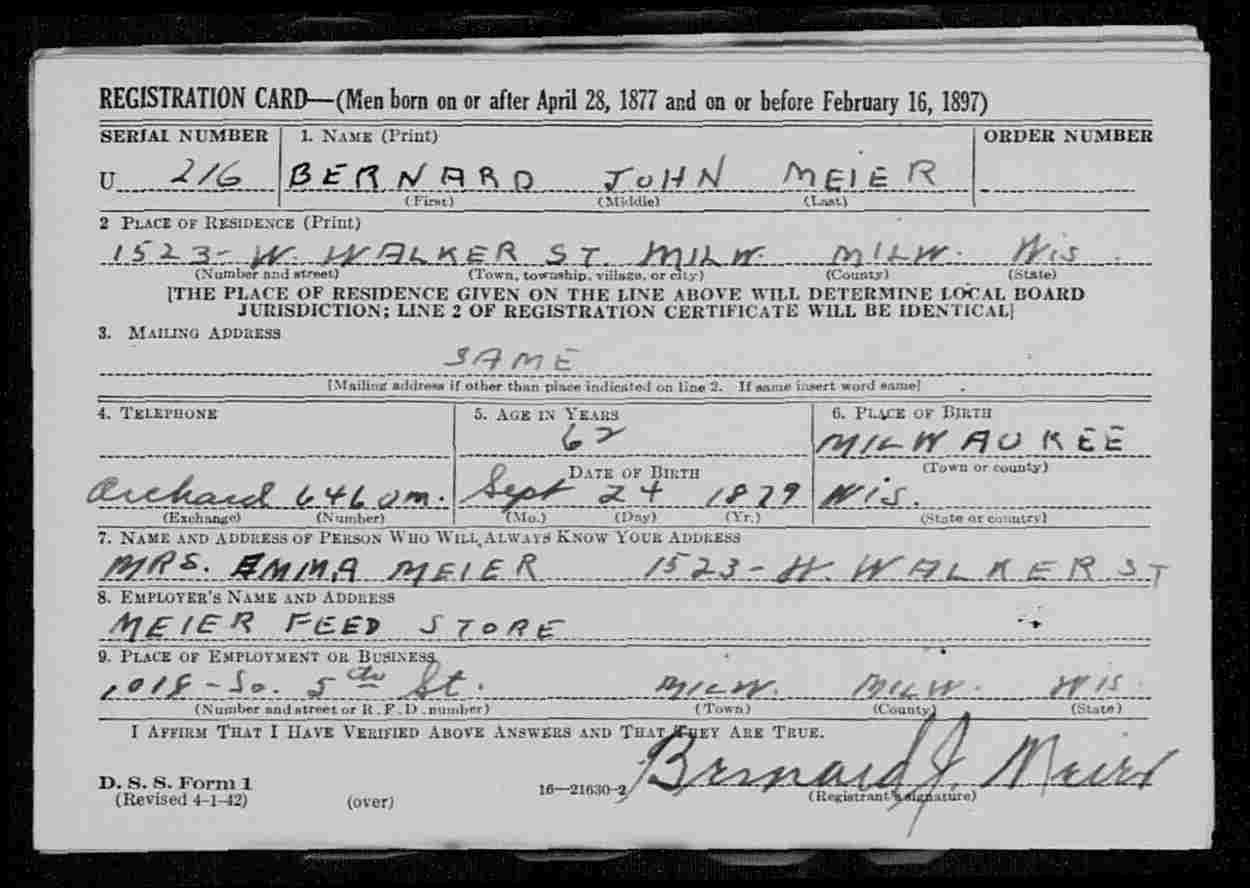 REGISTRATION CARD—(Men born on or after April 28, 1877 and on or before February 16, 1897)
SERIAL NUMBER 1. NAME (Print) ORDER NUMBER
U 216 BERNARD JOHN MEIER
(First) (Middle) (Last)
2 PLACE OF RESIDENCE (Print)
1523- W. WALKER ST. MILW. MILW. Wis.
(Number and street) (Town, township, village, or city) (County) (State)
[THE PLACE OF RESIDENCE GIVEN ON THE LINE ABOVE WILL DETERMINE LOCAL BOARD
JURISDICTION; LINE 2 OF REGISTRATION CERTIFICATE WILL BE IDENTICAL]
3. MAILING ADDRESS
SAME
[Mailing address if other than place indicated on line 2. If same insert word same]
4. TELEPHONE 5. AGE IN YEARS 6. PLACE OF BIRTH
62 MILWAUKEE
DATE OF BIRTH (Town or county)
Orchard 6460 m. Sept 24 1879 Wis.
(Exchange) (Number) (Mo.) (Day) (Yr.) (State or country)
7. NAME AND ADDRESS OF PERSON WHO WILL ALWAYS KNOW YOUR ADDRESS
MRS. EMMA MEIER 1523- W. WALKER ST
8. EMPLOYER'S NAME AND ADDRESS
MEIER FEED STORE
9. PLACE OF EMPLOYMENT OR BUSINESS
1018 - So. 5th St. MILW. MILW. WIS.
(Number and street or R. F. D. number) (Town) (County) (State)
I AFFIRM THAT I HAVE VERIFIED ABOVE ANSWERS AND THAT THEY ARE TRUE.
Bernard J. Meier
D. S. S. Form 1 16—21630-2 (Registrant's signature)
(Revised 4-1-42) (over)